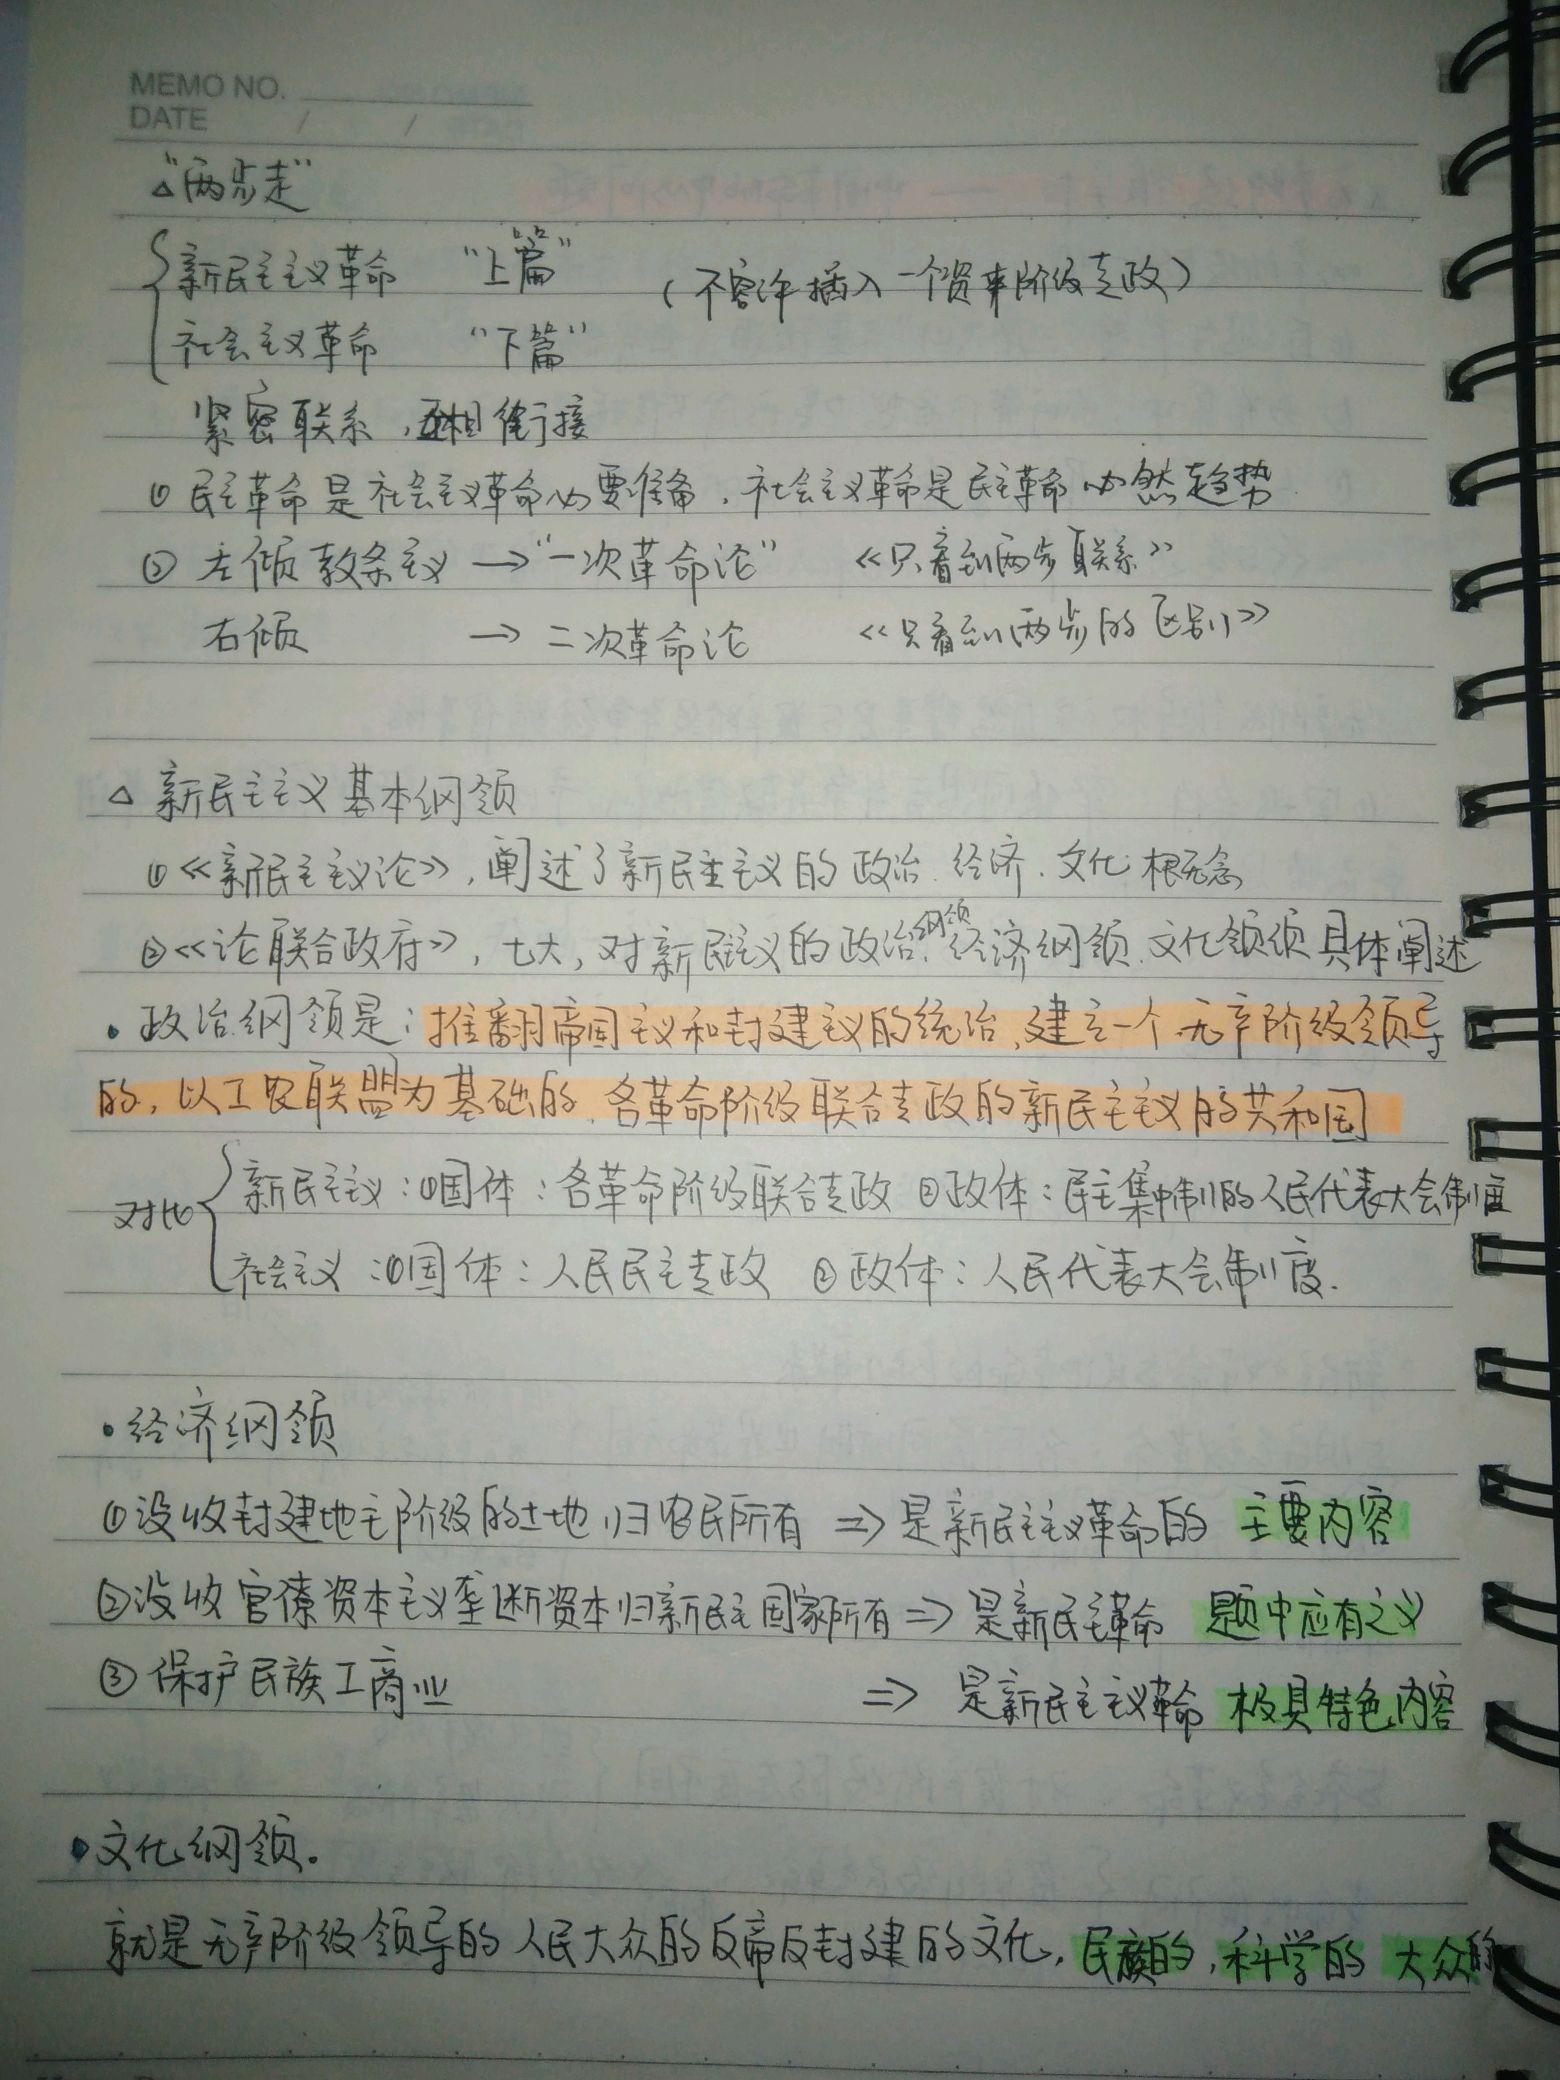 MEMO NO.
DATE / /
△"两步走"
新民主主义革命 "上篇" (不容许插入一个资产阶级专政)
社会主义革命 "下篇"
紧密联系,互相衔接
① 民主革命是社会主义革命必要准备,社会主义革命是民主革命必然趋势
② 左倾教条主义 → "一次革命论" 《只看到两步联系》
右倾 → 二次革命论 《只看到两步的区别》
△ 新民主主义基本纲领
①《新民主主义论》,阐述了新民主主义的政治、经济、文化 概念
②《论联合政府》,七大,对新民主主义的政治纲领、经济纲领、文化领须具体阐述
• 政治纲领是:推翻帝国主义和封建主义的统治,建立一个无产阶级领导
的,以工农联盟为基础的、各革命阶级联合专政的新民主主义的共和国
对比 新民主主义:①国体:各革命阶级联合专政 ②政体:民主集中制的人民代表大会制度
社会主义:①国体:人民民主专政 ②政体:人民代表大会制度.
• 经济纲领
①没收封建地主阶级的土地归农民所有 ⇒ 是新民主主义革命的 主要内容
②没收官僚资本主义垄断资本归新民主国家所有 ⇒ 是新民主革命 题中应有之义
③保护民族工商业 ⇒ 是新民主主义革命 极具特色内容
• 文化纲领.
就是无产阶级领导的人民大众的反帝反封建的文化,民族的,科学的 大众的